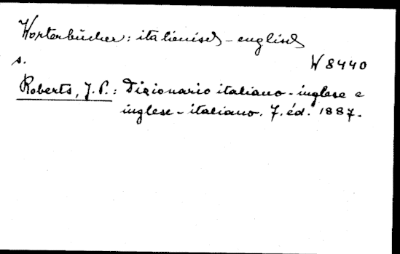 Wörterbücher: italienisch-englisch
s. W 8440
Roberts, J. P.: Dizionario italiano-inglese e
inglese-italiano. 7. éd. 1887.